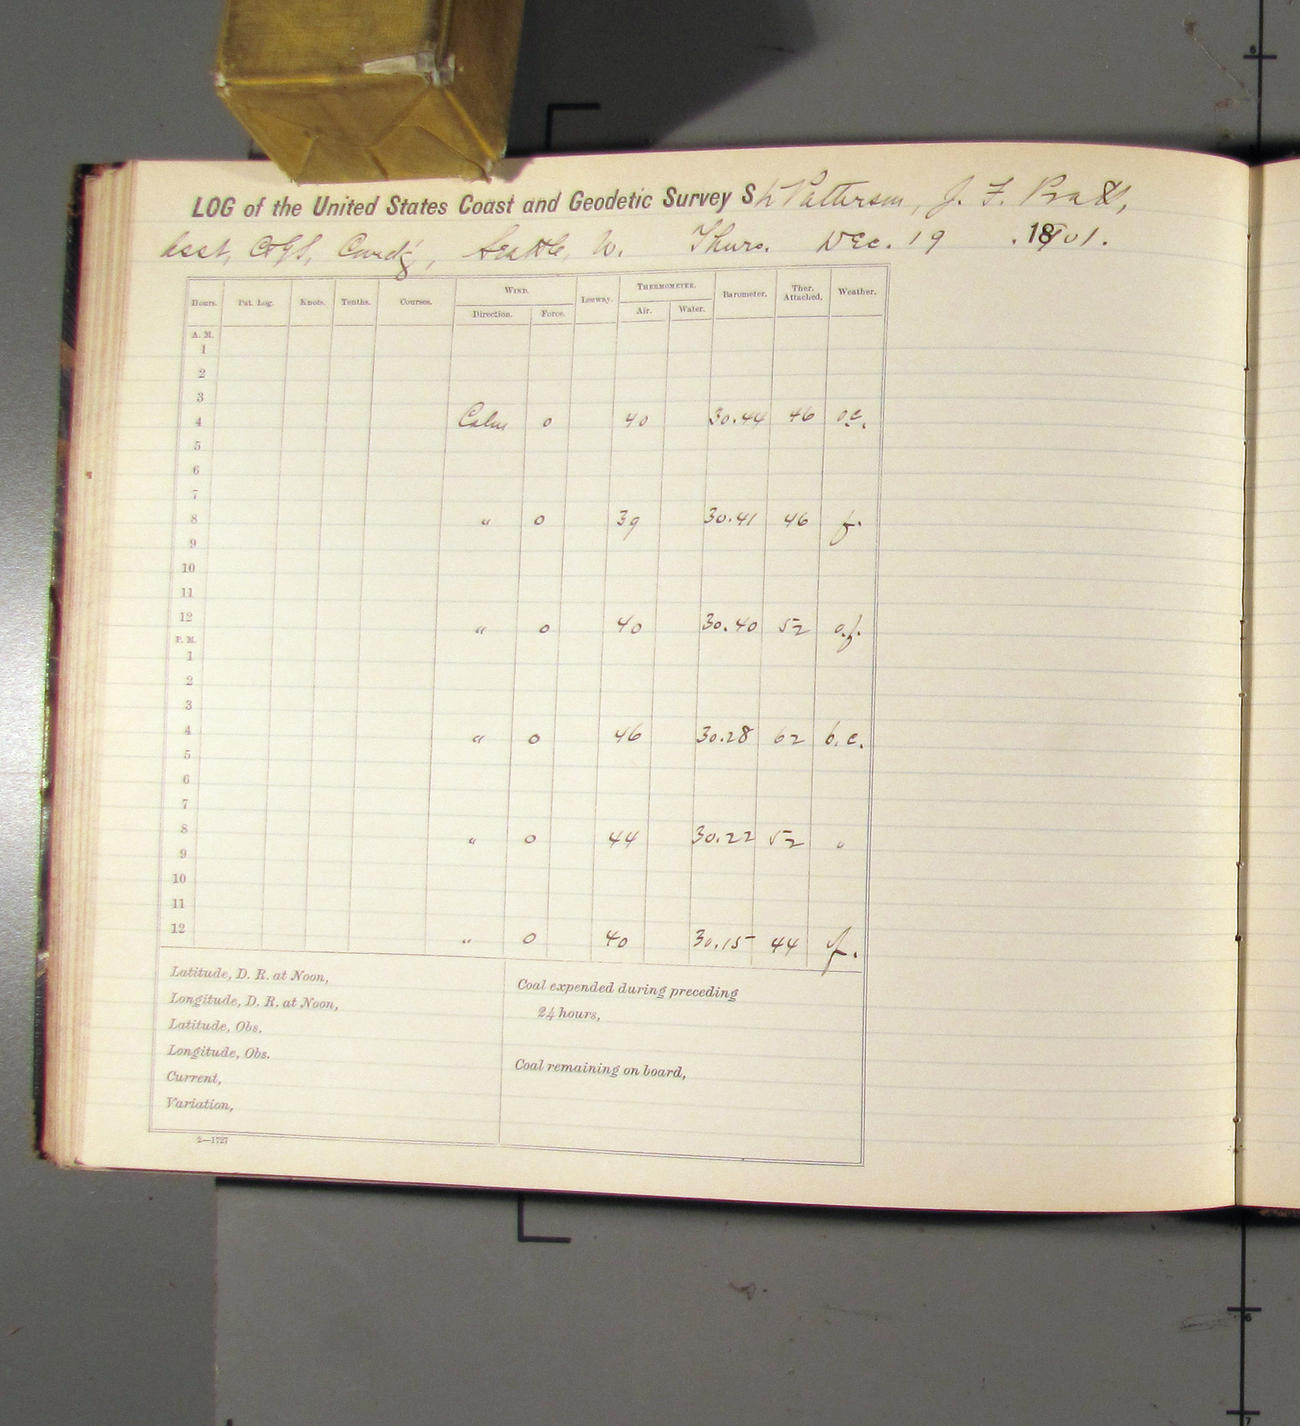 LOG of the United States Coast and Geodetic Survey Str Patterson, J. F. Pratt,
Asst, C&GS, Comd'g, Seattle, W. Thurs. Dec. 19, 1901.
Hours. Pat. Log. Knots. Tenths. Courses. WIND. Leeway. THERMOMETER. Barometer. Ther. Attached. Weather.
Direction. Force. Air. Water.
A. M.
1
2
3
4 Calm 0 40 30.44 46 o.c.
5
6
7
8 " 0 39 30.41 46 f.
9
10
11
12 " 0 40 30.40 52 o.f.
P. M.
1
2
3
4 " 0 46 30.28 62 b.c.
5
6
7
8 " 0 44 30.22 52 "
9
10
11
12 " 0 40 30.15 44 f.
Latitude, D. R. at Noon,
Longitude, D. R. at Noon,
Latitude, Obs.
Longitude, Obs.
Current,
Variation,
Coal expended during preceding
24 hours,
Coal remaining on board,
2—1727
6
6
7